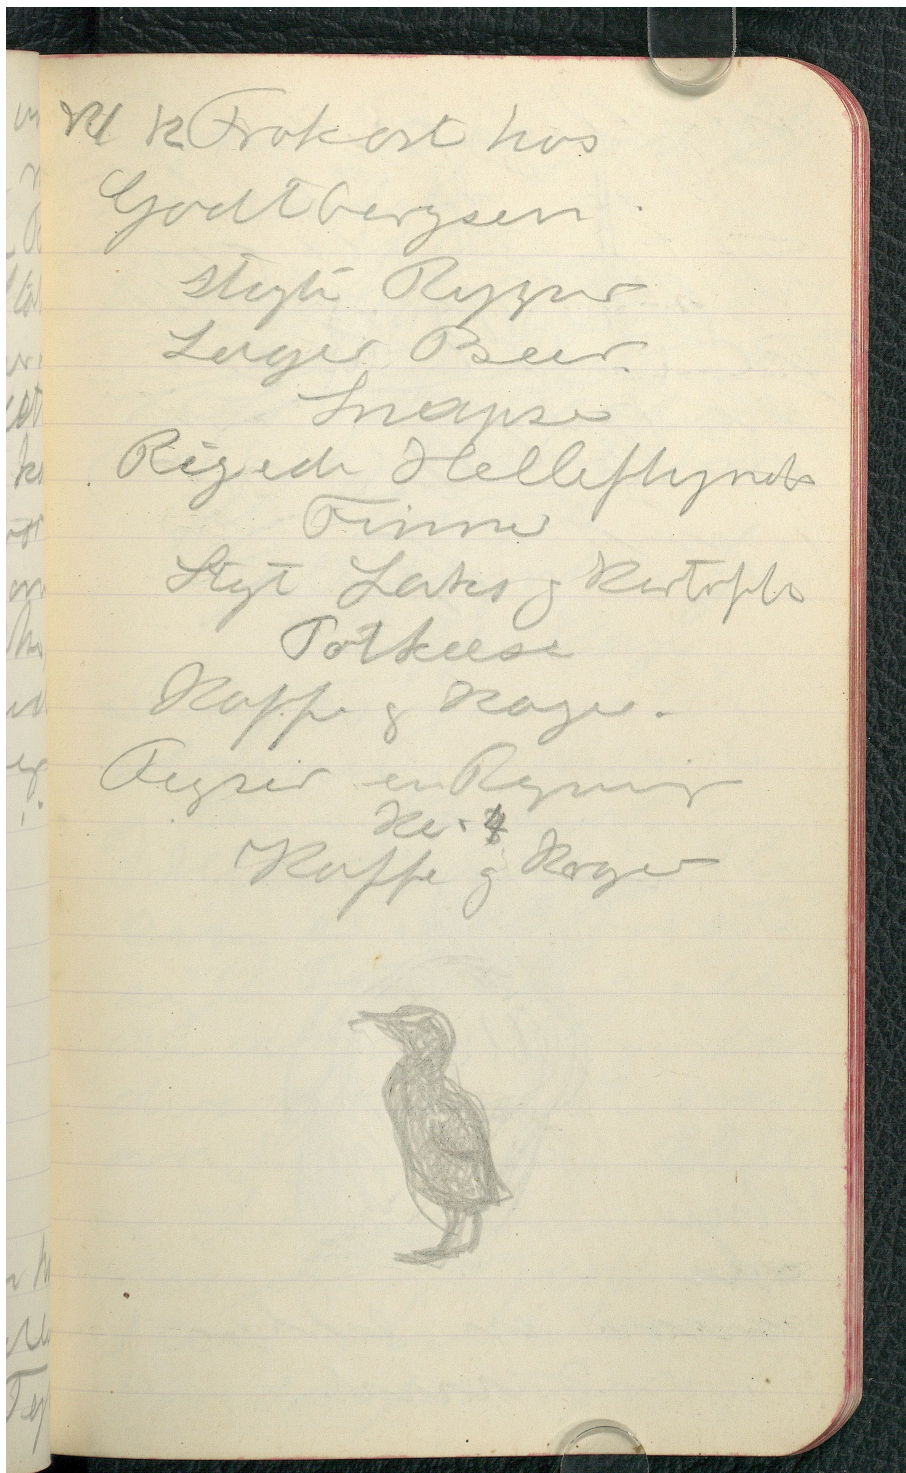 Kl 12 Frokost hos
Godtbergsen.
stegte Ryper
Lager Beer.
Snapse
Røgede Helleflynder
Finner
Stegt Laks og Kartofler
Potkeese
Kaffe og Kager.
Kaffe og Kager